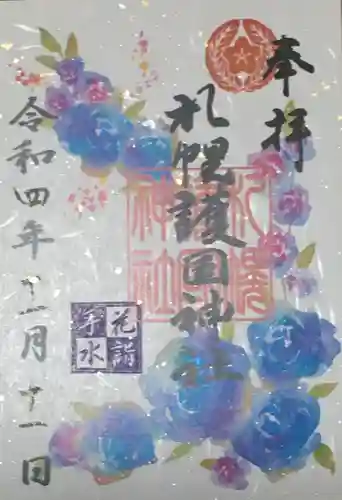 奉拝
札幌護国神社
札幌護国神社
花詣
手水
令和四年十一月十一日